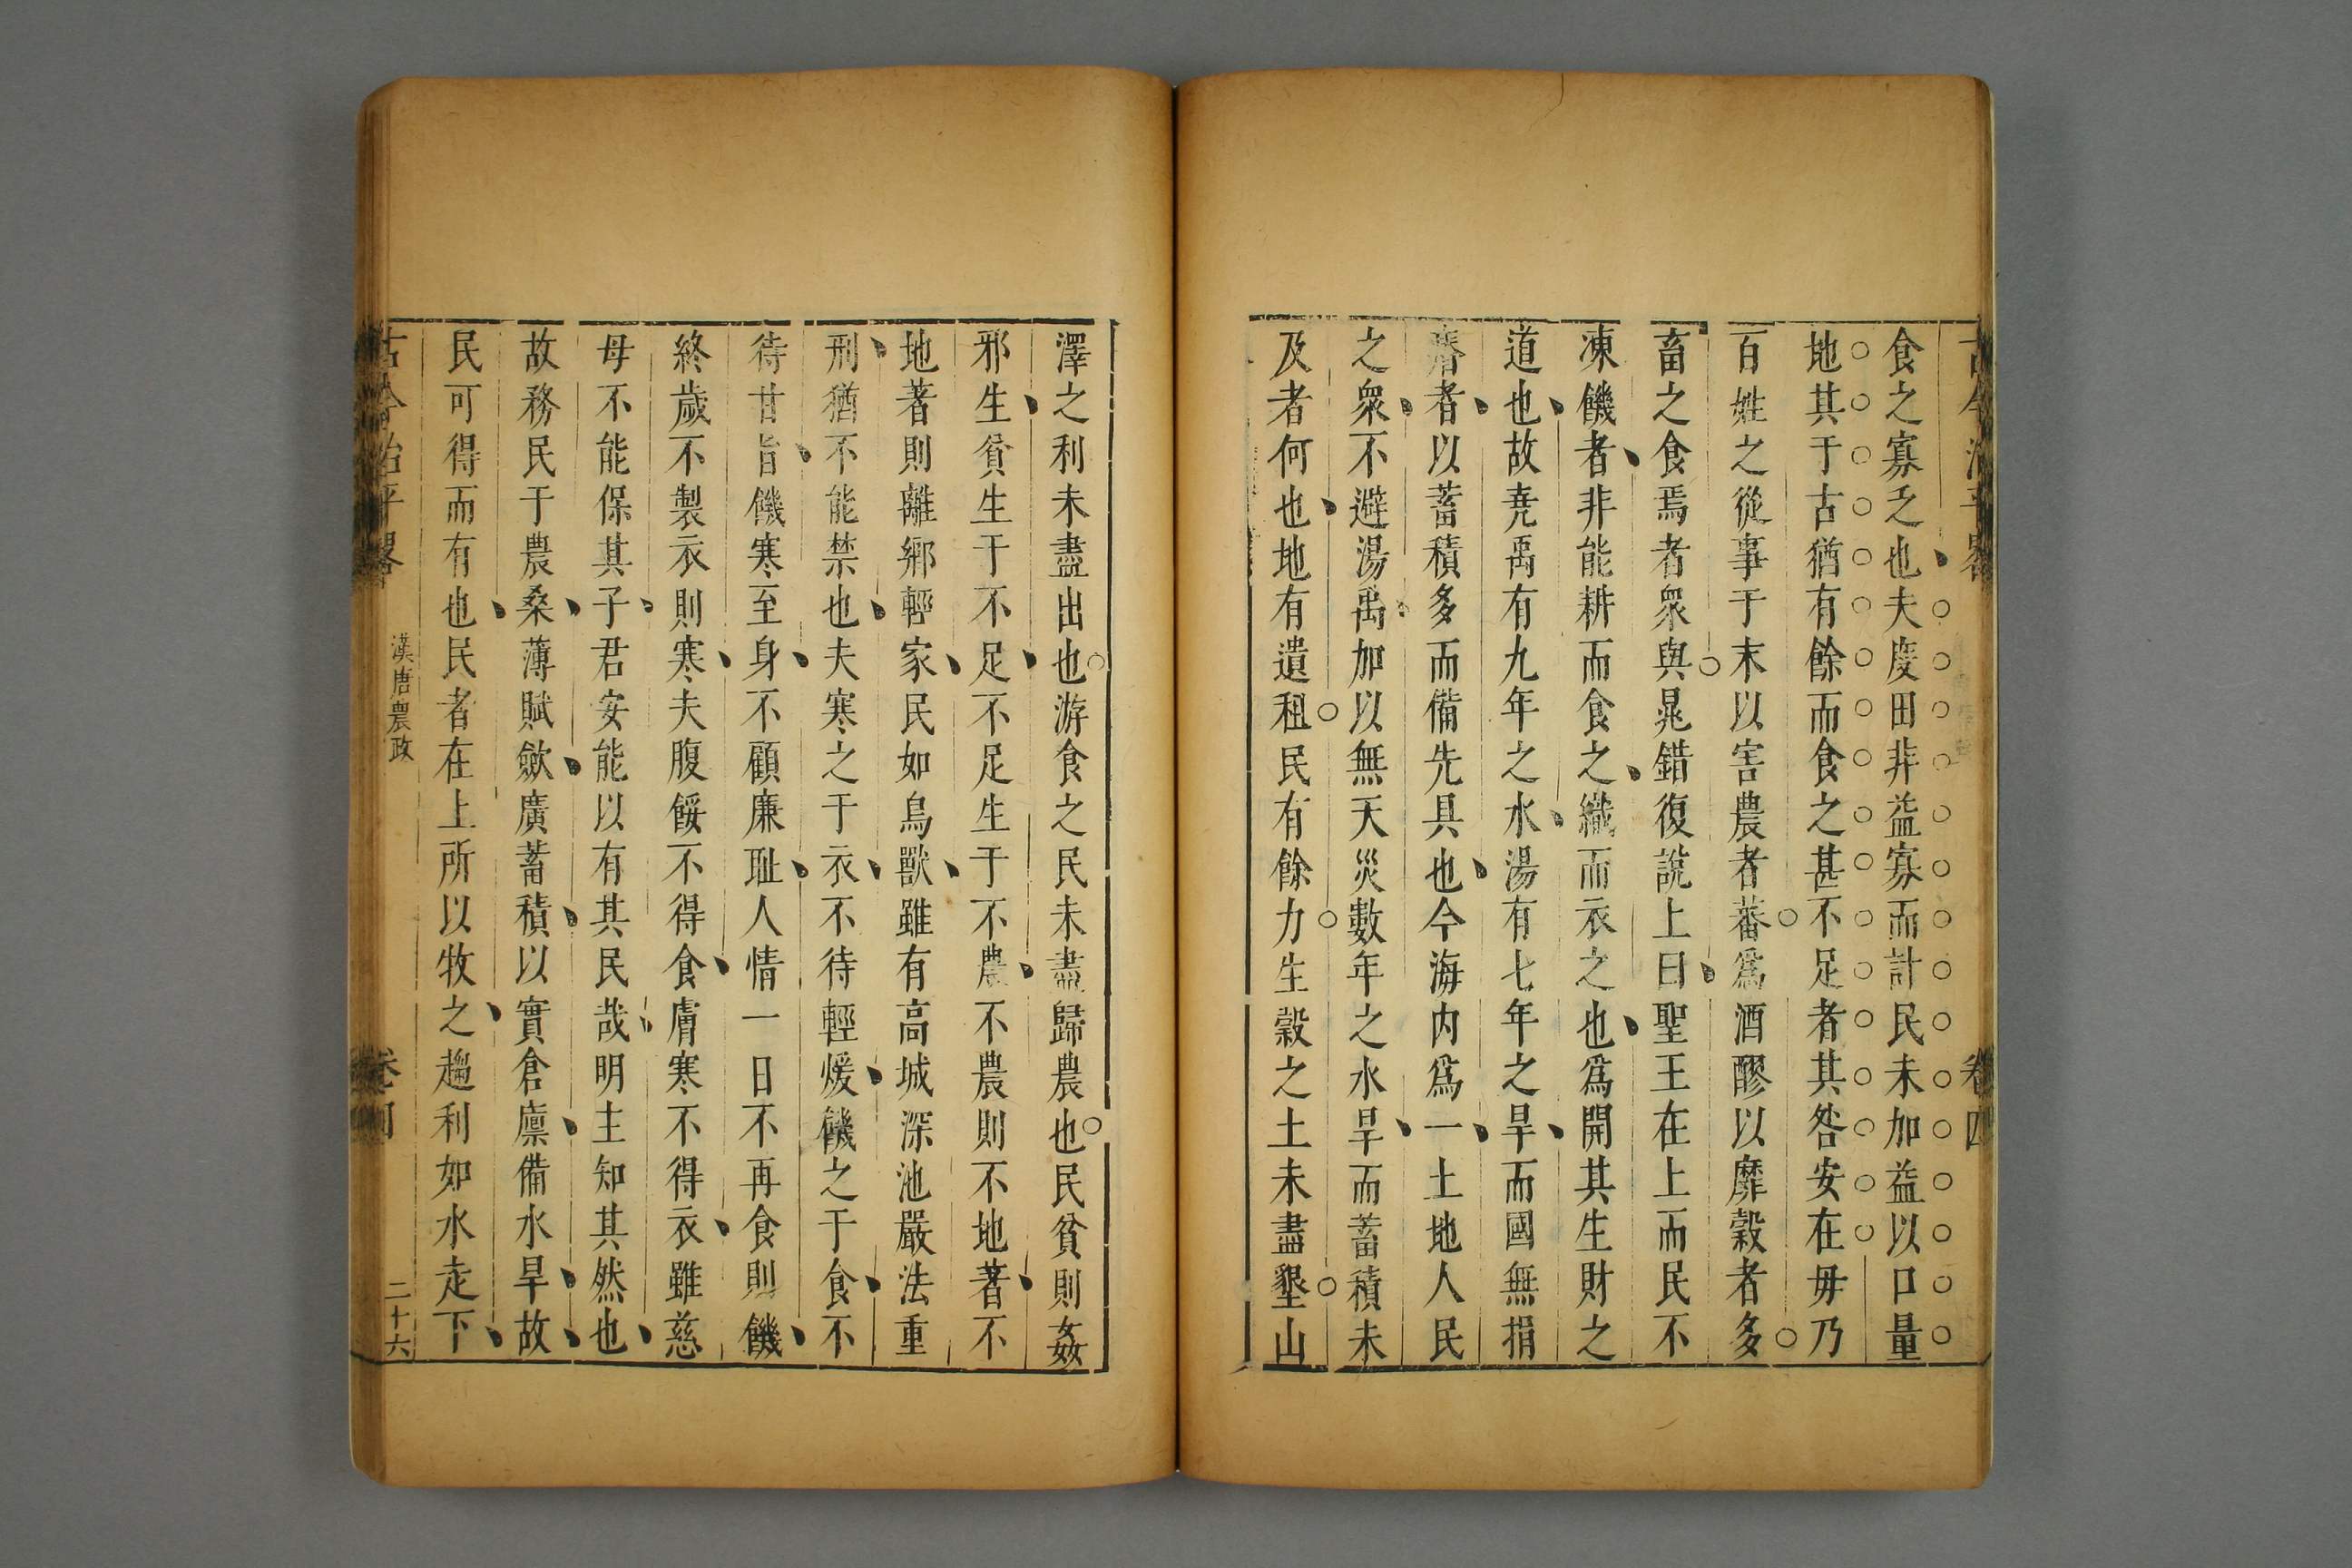 食之寡乏也夫度田非益寡而計民未加益以口量
地其于古猶有餘而食之甚不足者其咎安在毋乃
百姓之從事于末以害農者蕃爲酒醪以靡穀者多
畜之食焉者衆與晁錯復說上曰聖王在上而民不
凍饑者非能耕而食之織而衣之也爲開其生財之
道也故堯禹有九年之水湯有七年之旱而國無捐
瘠者以蓄積多而備先具也今海内爲一土地人民
之衆不避湯禹加以無天災數年之水旱而蓄積未
及者何也地有遺租民有餘力生穀之土未盡墾山
澤之利未盡出也游食之民未盡歸農也民貧則姦
邪生貧生于不足不足生于不農不農則不地著不
地著則離鄉輕家民如鳥獸雖有高城深池嚴法重
刑猶不能禁也夫寒之于衣不待輕煖饑之于食不
待甘旨饑寒至身不顧廉耻人情一日不再食則饑
終歲不製衣則寒夫腹餒不得食膚寒不得衣雖慈
母不能保其子君安能以有其民哉明主知其然也
故務民于農桑薄賦斂廣蓄積以實倉廩備水旱故
民可得而有也民者在上所以牧之趨利如水走下
古今治平畧 漢唐農政 卷四 二十六